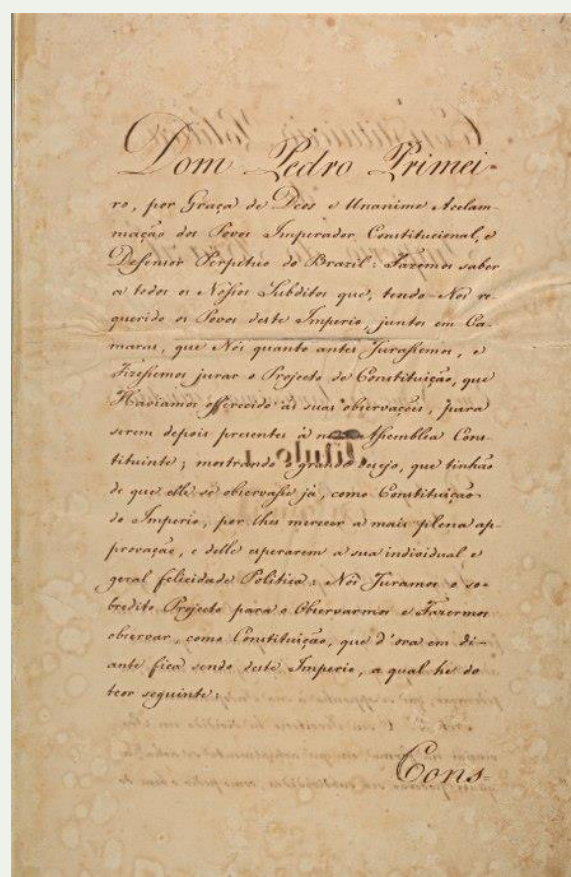 Dom Pedro Primei-
ro, por Graça de Deos e Unanime Acclam-
mação dos Povos Imperador Constitucional, e
Defensor Perpetuo do Brazil: Fazemos saber
a todos os Nossos Subditos que, tendo-Nos re-
querido os Povos deste Imperio, juntos em Ca-
maras, que Nós quanto antes Jurassemos, e
Fizessemos jurar o Projecto de Constituição, que
Haviamos offerecido ás suas observações, para
serem depois presentes á nova Assemblea Cons-
tituinte; mostrando o grande desejo, que tinhão
de que elle se observasse já, como Constituição
do Imperio, por lhes merecer a mais plena ap-
provação, e delle esperarem a sua individual e
geral felicidade Politica: Nós Juramos o so-
bredito Projecto para o Observarmos e Fazermos
observar, como Constituição, que d'ora em di-
ante fica sendo deste Imperio, a qual he do
teor seguinte:
Cons-